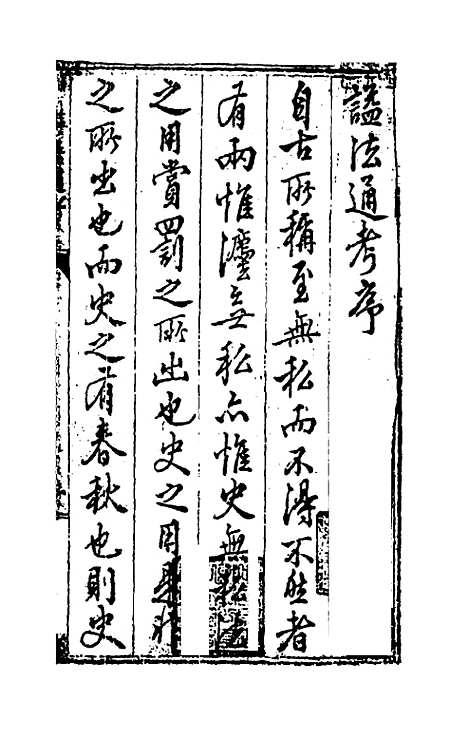 諡法通考序
自古所稱至無私而不得不然者
有兩惟灋無私亦惟史無私灋
之用賞罰之所出也史之用是非
之所出也而史之有春秋也則史